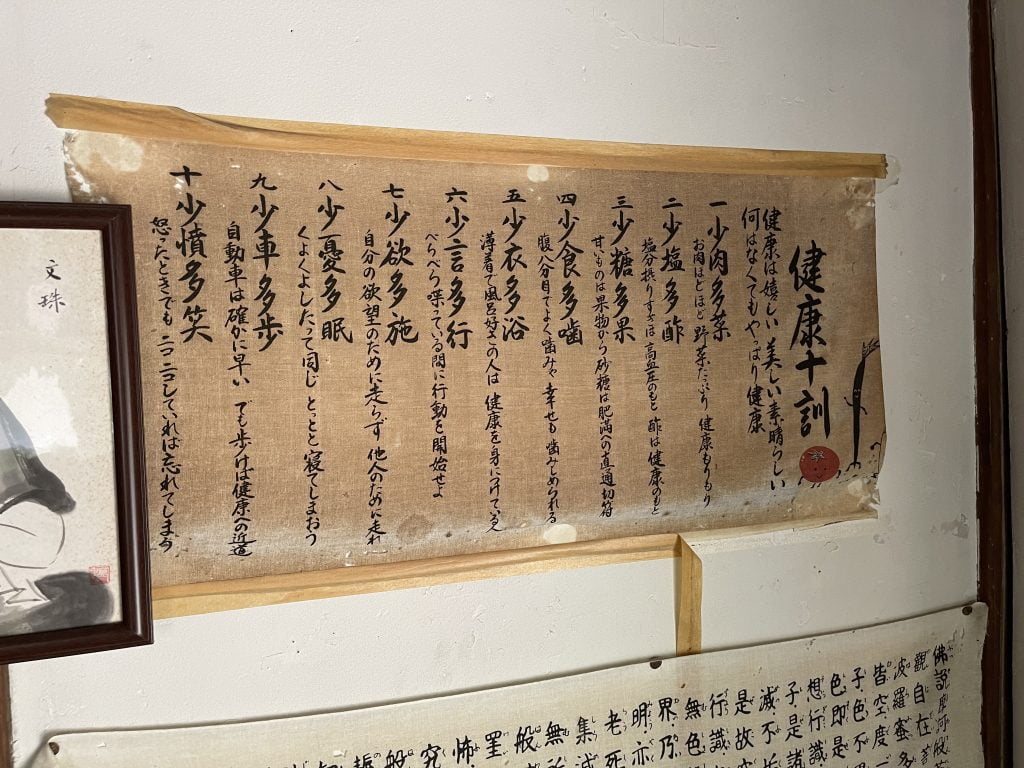 健康十訓
健康は嬉しい 美しい 素晴らしい
何はなくてもやっぱり健康
一 少肉多菜
お肉はほどほど 野菜たっぷり 健康もりもり
二 少塩多酢
塩分摂りすぎは 高血圧のもと 酢は健康のもと
三 少糖多果
甘いものは果物から 砂糖は肥満への直通切符
四 少食多噛
腹八分目でよく噛みゃ 幸せも 噛みしめられる
五 少衣多浴
薄着で風呂好きの人は 健康を身につけている人
六 少言多行
べらべら喋っている間に行動を開始せよ
七 少欲多施
自分の欲望のために走らず 他人のために走れ
八 少憂多眠
くよくよしたって同じ とっとと寝てしまおう
九 少車多歩
自動車は確かに早い でも歩けば健康への近道
十 少憤多笑
怒ったときでも ニコニコしていれば忘れてしまう
文珠
佛説摩訶般若
觀自在菩
波羅蜜多
皆空度一
子色不
色即是
想行識
子是諸
滅不
是故空
行識
無色
界乃
明亦
老死
集滅
無所
般
罣
怖
究
般